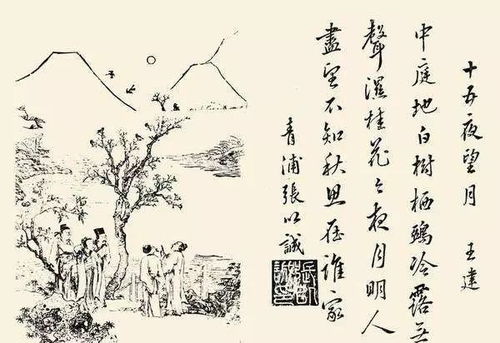 十五夜望月 王建
中庭地白樹栖鴉冷露無
聲濕桂花今夜月明人
盡望不知秋思在誰家
青浦張以誠